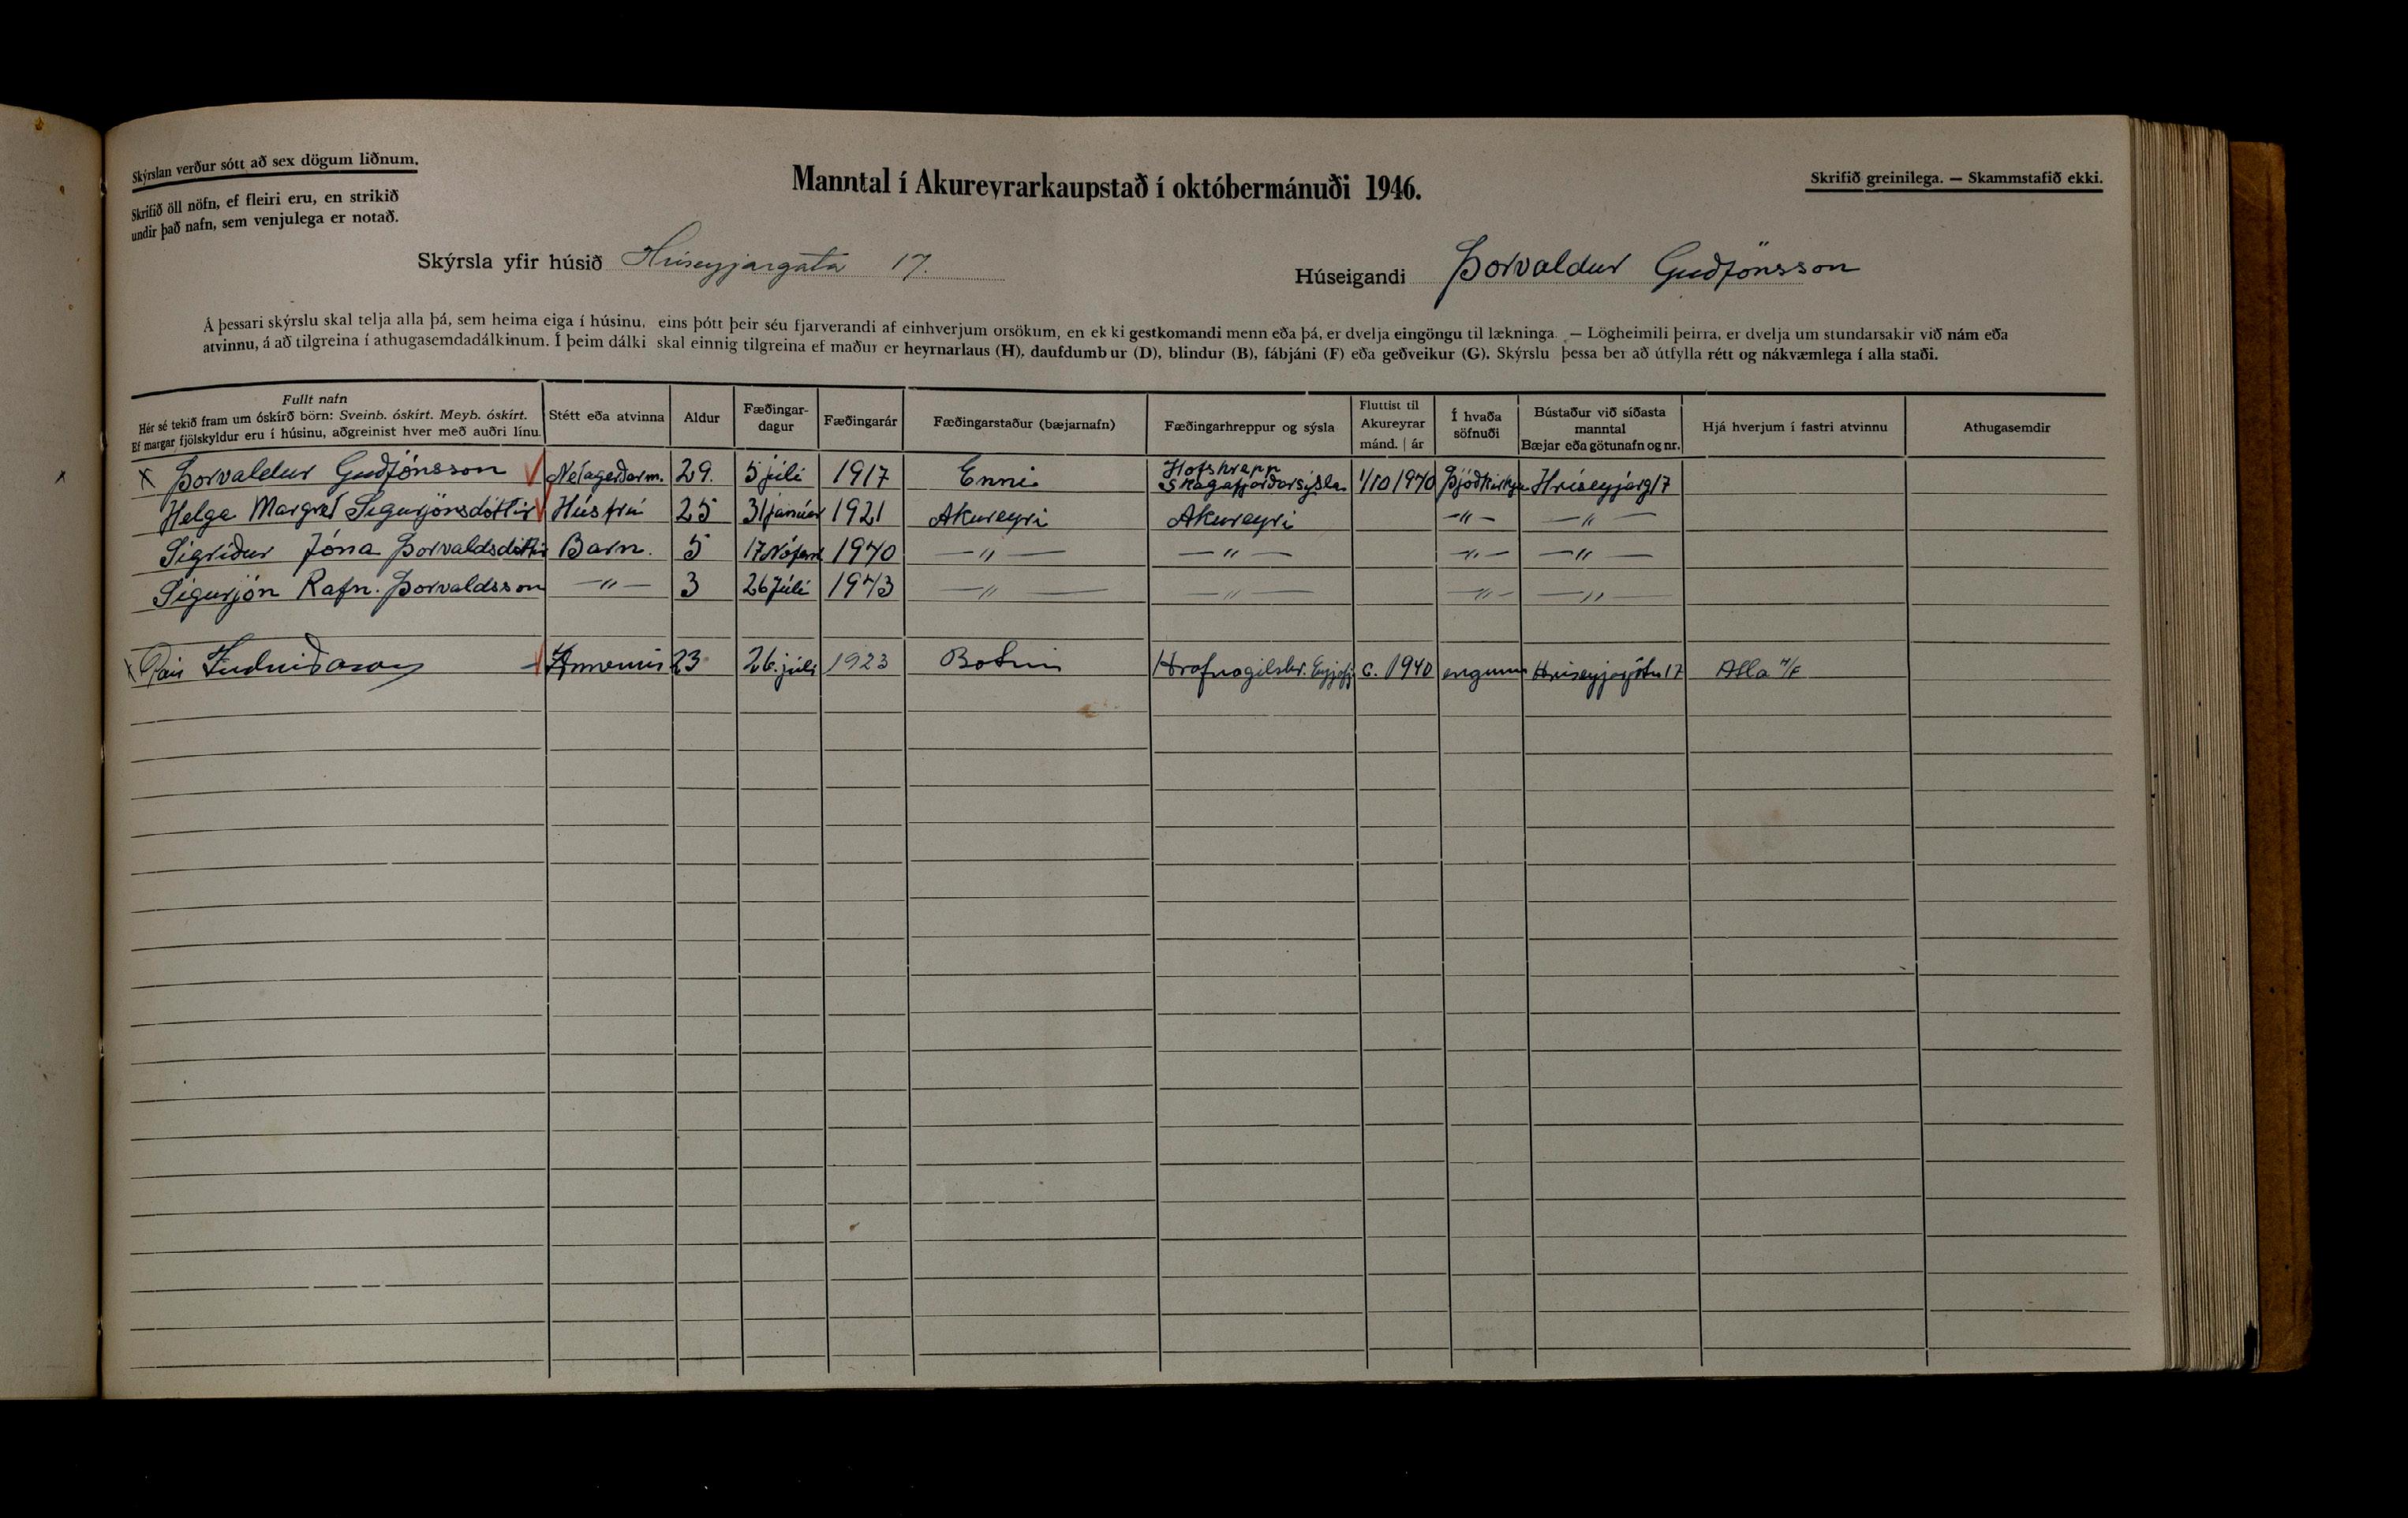 Skýrslan verður sótt að sex dögum liðnum.
Skrifið öll nöfn, ef fleiri eru, en strikið
undir það nafn, sem venjulega er notað.
Manntal í Akureyrarkaupstað í októbermánuði 1946.
Skrifið greinilega. — Skammstafið ekki.
Skýrsla yfir húsið Hríseyjargata 17.
Húseigandi Þorvaldur Guðjónsson
Á þessari skýrslu skal telja alla þá, sem heima eiga í húsinu, eins þótt þeir séu fjarverandi af einhverjum orsökum, en ekki gestkomandi menn eða þá, er dvelja eingöngu til lækninga. — Lögheimili þeirra, er dvelja um stundarsakir við nám eða
atvinnu, á að tilgreina í athugasemdadálkinum. Í þeim dálki skal einnig tilgreina ef maður er heyrnarlaus (H), daufdumbur (D), blindur (B), fábjáni (F) eða geðveikur (G). Skýrslu þessa ber að útfylla rétt og nákvæmlega í alla staði.
Fullt nafn
Hér sé tekið fram um óskírð börn: Sveinb. óskírt. Meyb. óskírt.
Ef margar fjölskyldur eru í húsinu, aðgreinist hver með auðri línu.
Stétt eða atvinna
Aldur
Fæðingar-
dagur
Fæðingarár
Fæðingarstaður (bæjarnafn)
Fæðingarhreppur og sýsla
Fluttist til
Akureyrar
mánd. | ár
Í hvaða
söfnuði
Bústaður við síðasta
manntal
Bæjar eða götunafn og nr.
Hjá hverjum í fastri atvinnu
Athugasemdir
x Þorvaldur Guðjónsson Netagerðarm. 29. 5 júli 1917 Enni Hofshrepp Skagafjarðarsýsla 1/10 1940 Þjóðkirkju Hríseyjarg 17
Helga Margrét Sigurjónsdóttir Húsfrú 25 31 janúar 1921 Akureyri Akureyri —"— —"—
Sigríður Jóna Þorvaldsdóttir Barn. 5 17 Nófem 1940 —"— —"— —"— —"—
Sigurjón Rafn. Þorvaldsson —"— 3 26 Júli 1943 —"— —"— —"— —"—
x 23 26. júli 1923 Botni Hrafnagilshr. Eyjafj. 1940 engum Hríseyjargötu 17 Atla H/F